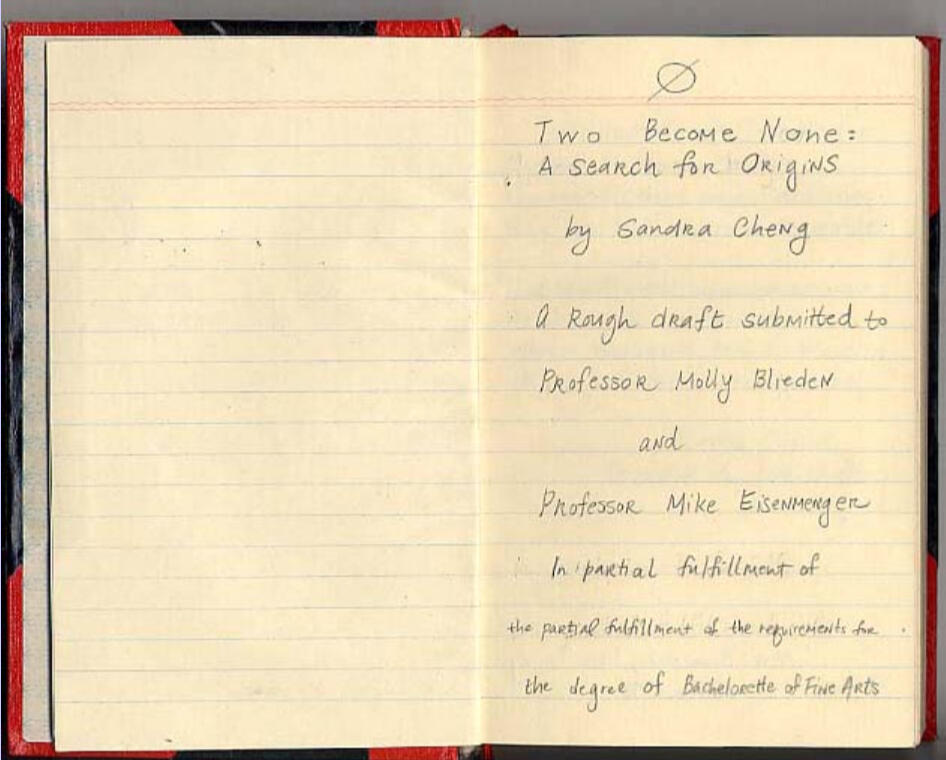 Ø
Two Become None:
A Search for Origins
by Sandra Cheng
A Rough draft submitted to
Professor Molly Blieden
and
Professor Mike Eisenmenger
In partial fulfillment of
the partial fulfillment of the requirements for
the degree of Bachelorette of Fine Arts